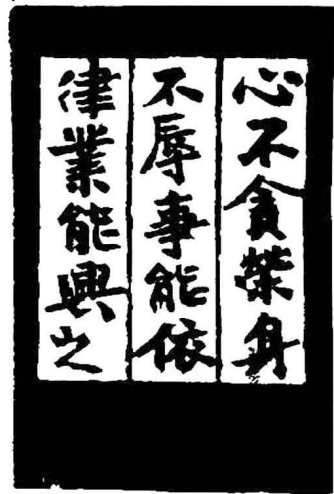 心不貪榮身
不辱事能依
律業能興之